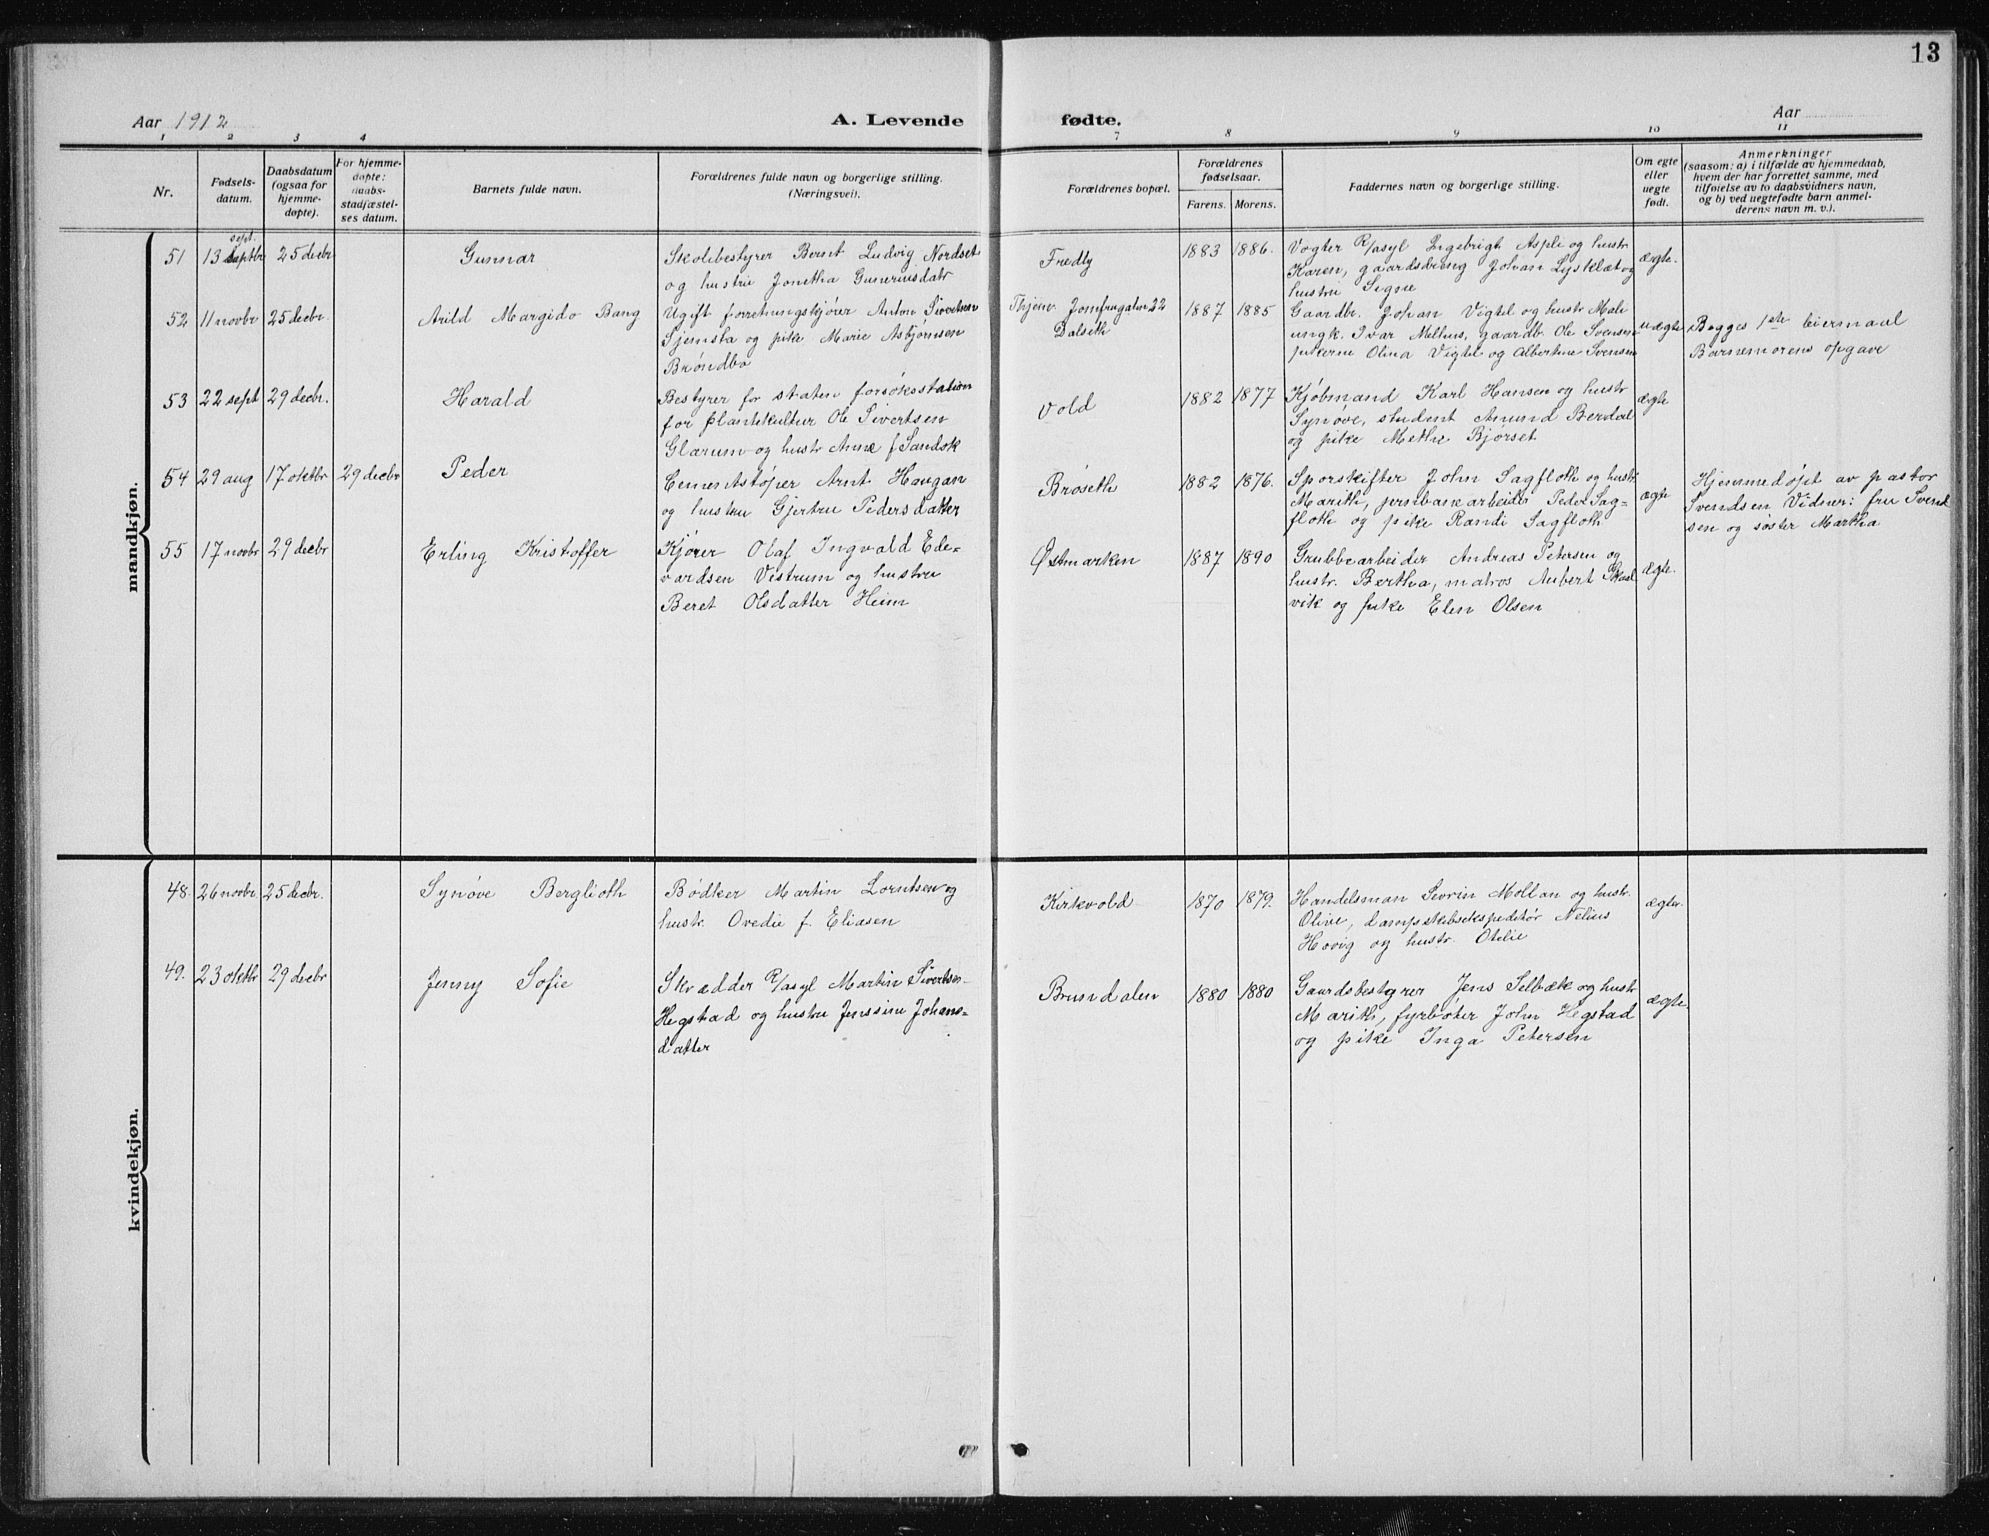 13
Aar 1912
A. Levende
fødte.
Aar
1 2 3 4 7 8 9 10 11
Nr.
Fødsels-
datum.
Daabsdatum
(ogsaa for
hjemme-
døpte).
For hjemme-
døpte:
daabs-
stadfæstel-
ses datum.
Barnets fulde navn.
Forældrenes fulde navn og borgerlige stilling.
(Næringsvei).
Forældrenes bopæl.
Forældrenes
fødselsaar.
Farens. Morens.
Faddernes navn og borgerlige stilling.
Om egte
eller
uegte
født.
Anmerkninger
(saasom: a) i tilfælde av hjemmedaab,
hvem der har forrettet samme, med
tilføielse av to daabsvidners navn,
og b) ved uegtefødte barn anmel-
derens navn m. v.).
mandkjøn.
sept.
51 13 septbr 25 decbr Gunnar
Skolebestyrer Bernt Ludvig Nordset
og hustru Jonetha Guneriusdatr
Fredly
1883 1886.
Vogter R/asyl Ingebrigt Asple og hustr
Karen, gaardsdreng Johan Lysklæt og
hustru Signe
ægte.
52 11 novbr 25 decbr. Arild Margido Bang
Ugift forretningskjører Anton Sivertsen
Sjemsta og pike Marie Asbjørnsen
Brøndbo
Thjem Jomfrugaten 22
Dalseth
1887 1885
Gaardbr. Johan Vigtel og hustr Mali
ungk. Ivar Melhus, gaardb Ole Svensen
pikerne Olina Vigtel og Albertine Svensen
uægte
Begges 1ste leiermaal
Barnemorens opgave
53 22 sept 29 decbr. Harald
Bestyrer for staten forsøksstation
for plantekultur Ole Sivertsen
Glærum og hustr Anne f Sandok
Vold
1882 1877
Kjøbmand Karl Hansen og hustr
Synøve, student Amund Berdal
og pike Methe Bjørset
ægte
54 29 aug 17 oktbr 29 decbr Peder
Cementstøper Arnt Haugan
og hustru Gjertru Pedersdatter
Brøseth
1882 1876.
Sporskifter John Sagfloth og hustr
Marith, jernbanearbeider Peder Sag=
floth og pike Randi Sagfloth
ægte
Hjemmedøpt av pastor
Svendsen Vidner: fru Svend
sen og søster Martha
55 17 novbr 29 decbr Erling Kristoffer
Kjører Olaf Ingvald Ede=
vardsen Vistrum og hustru
Beret Olsdatter Heim
Østmarken
1887 1890
Grubbearbeider Andreas Petersen og
hustr. Bertha, matros Aubert Skaal
vik og pike Elen Olsen
ægte.
kvindekjøn.
48 26 novbr. 25 decbr. Synøve Berglioth
Bødker Martin Lorntsen og
hustr. Ovedie f. Eliasen
Kirkvold
1870 1879.
Handelsman Sevrin Mollan og hustr.
Olive, dampskibsekspeditør Nelius
Hovig og hustr. Otelie
ægte.
49. 23 oktbr 29 decbr Jenny Sofie
Skrædder R/asyl Martin Sivertsen
Hegstad og hustru Jenssine Johans=
datter
Brundalen
1880 1880
Gaardsbestyrer Jens Selbæk og hustr
Marith, fyrbøter John Hegstad
og pike Inga Petersen
ægte.